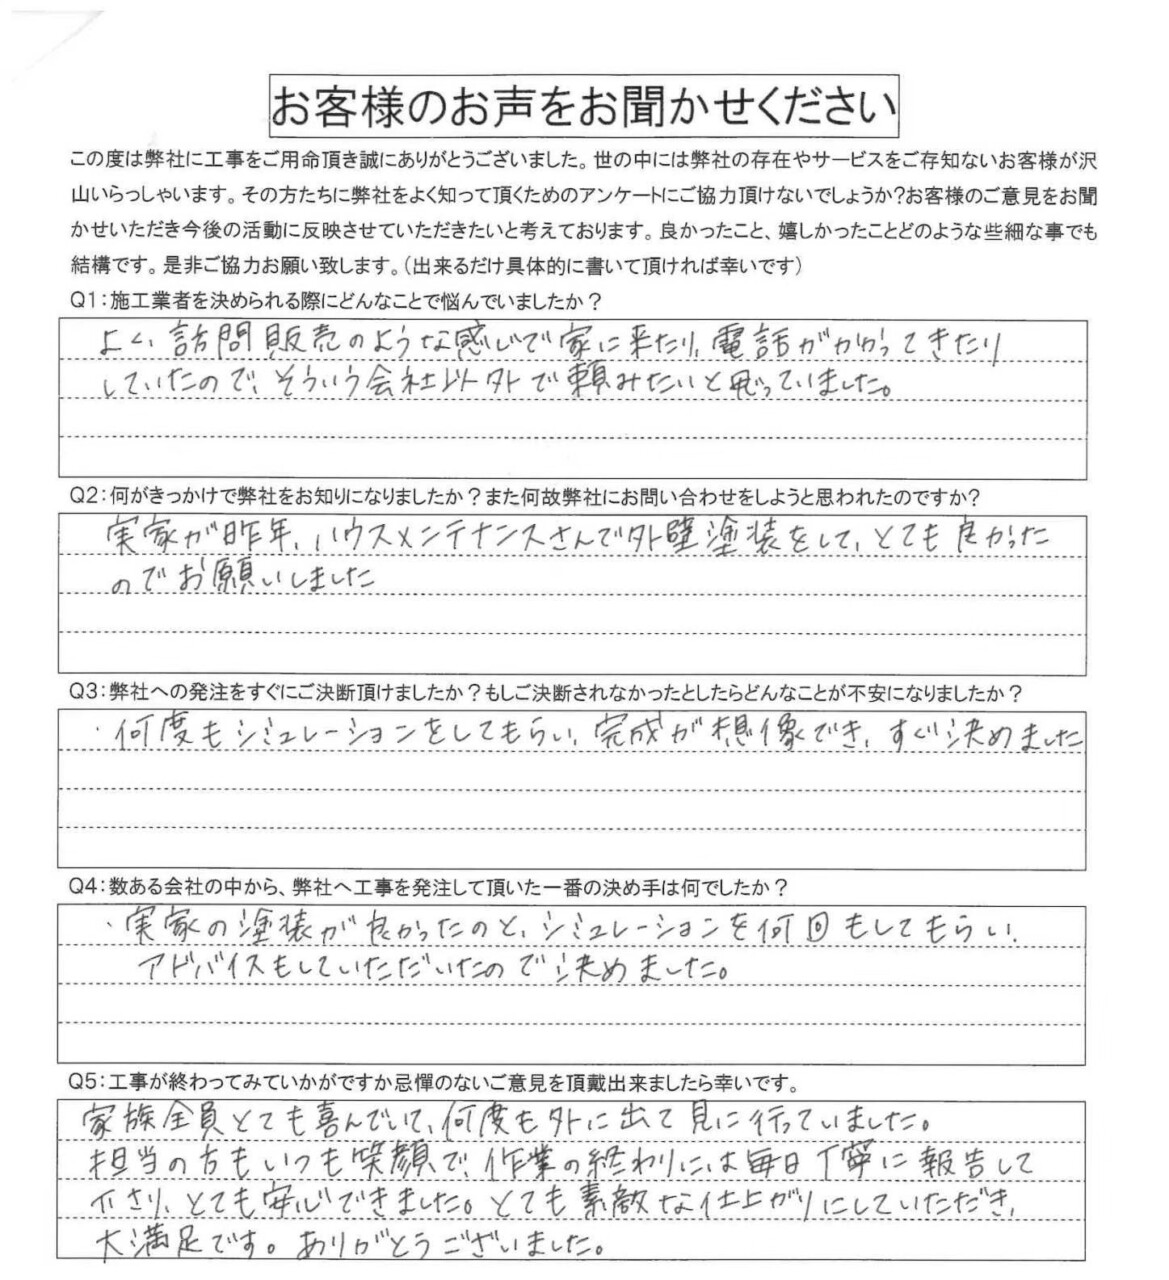 お客様のお声をお聞かせください
この度は弊社に工事をご用命頂き誠にありがとうございました。世の中には弊社の存在やサービスをご存知ないお客様が沢
山いらっしゃいます。その方たちに弊社をよく知って頂くためのアンケートにご協力頂けないでしょうか?お客様のご意見をお聞
かせいただき今後の活動に反映させていただきたいと考えております。良かったこと、嬉しかったことどのような些細な事でも
結構です。是非ご協力お願い致します。(出来るだけ具体的に書いて頂ければ幸いです)
Q1:施工業者を決められる際にどんなことで悩んでいましたか?
よく、訪問販売のような感じで家に来たり、電話がかかってきたり
していたので、そういう会社以外で頼みたいと思っていました。
Q2:何がきっかけで弊社をお知りになりましたか?また何故弊社にお問い合わせをしようと思われたのですか?
実家が昨年、ハウスメンテナンスさんで外壁塗装をして、とても良かった
のでお願いしました
Q3:弊社への発注をすぐにご決断頂けましたか?もしご決断されなかったとしたらどんなことが不安になりましたか?
・何度もシミュレーションをしてもらい、完成が想像でき、すぐ決めました
Q4:数ある会社の中から、弊社へ工事を発注して頂いた一番の決め手は何でしたか?
・実家の塗装が良かったのと、シミュレーションを何回もしてもらい、
アドバイスもしていただいたので決めました。
Q5:工事が終わってみていかがですか忌憚のないご意見を頂戴出来ましたら幸いです。
家族全員とても喜んでいて、何度も外に出て見に行っていました。
担当の方もいつも笑顔で、作業の終わりには毎日丁寧に報告して
下さり、とても安心できました。とても素敵な仕上がりにしていただき、
大満足です。ありがとうございました。